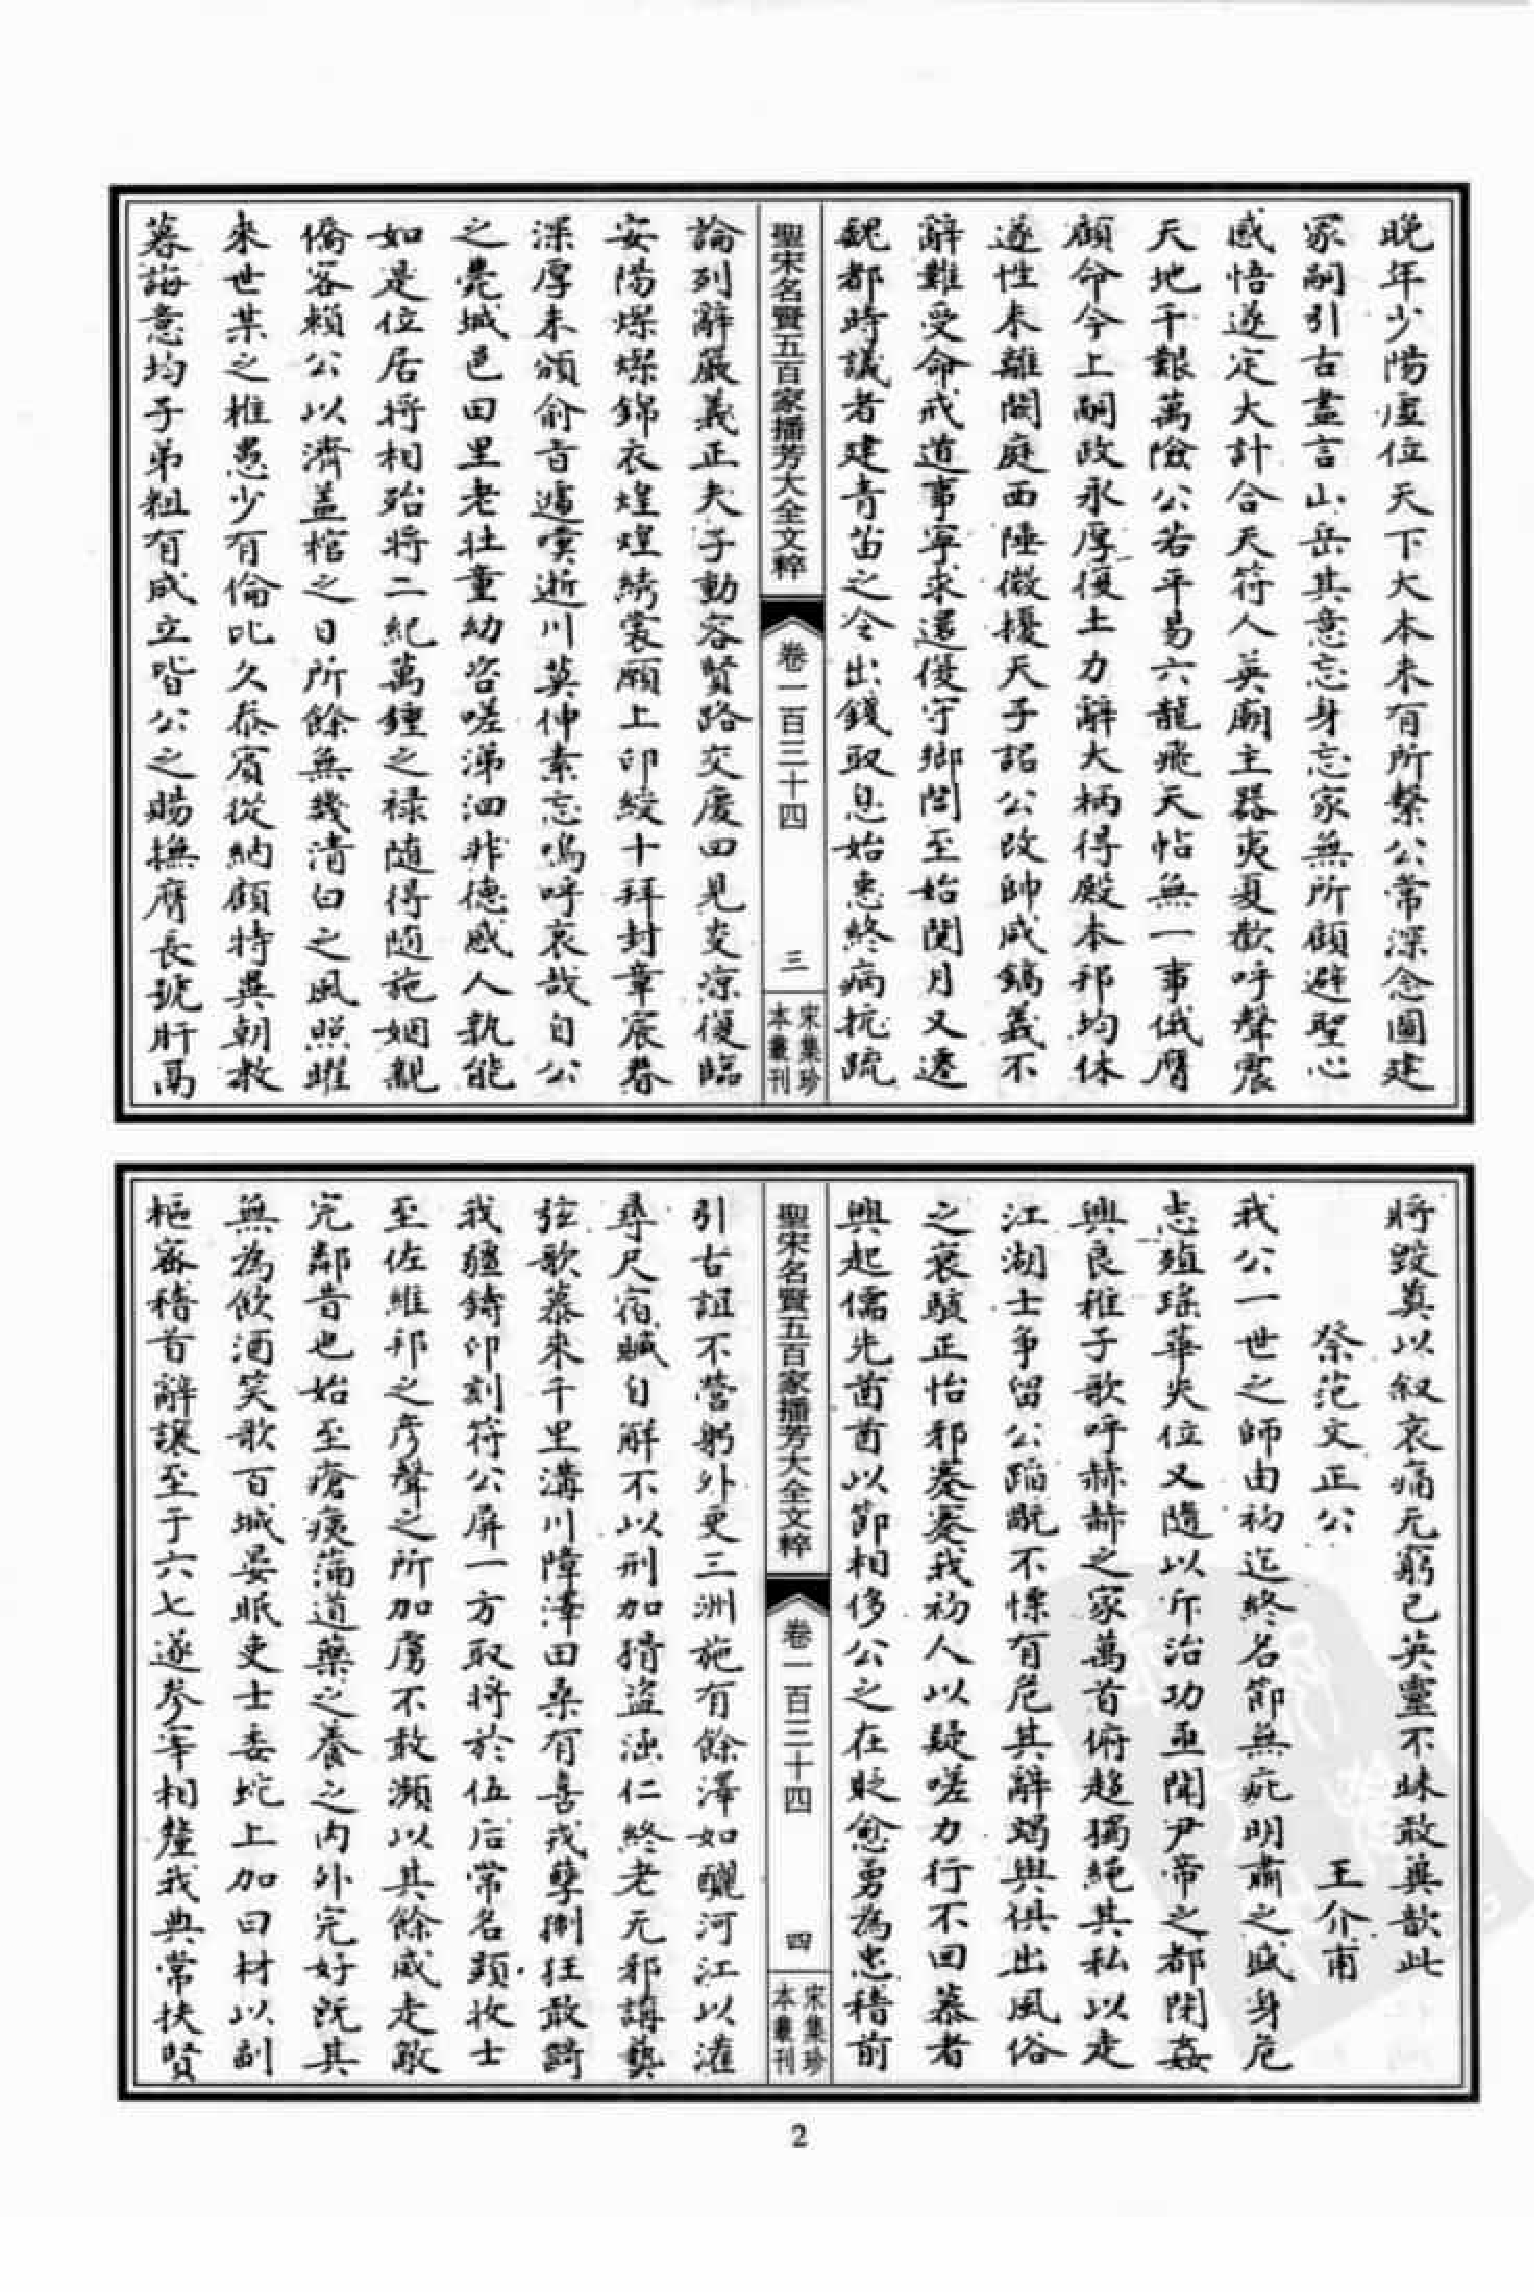 晚年少陽虛位天下大本未有所繫公常深念圖建
冢嗣引古盡言山岳其意忘身忘家無所顧避聖心
感悟遂定大計合天符人英廟主器夷夏歡呼聲震
天地千艱萬險公若平易六龍飛天帖無一事俄膺
顧命今上嗣政永厚復土力辭大柄得殿本邦均休
遂性未離闕庭西陲微擾天子詔公改帥咸鎬義不
辭難受命戒道事寧求還復守鄉閭至始閱月又遷
魏都時議者建青苗之令出錢取息始惠終病抗疏
聖宋名賢五百家播芳大全文粹
卷一百三十四
三
宋集珍
本叢刊
論列辭嚴義正夫子動容賢路交慶四見炎涼復臨
安陽燦燦錦衣煌煌綉裳願上印綬十拜封章宸眷
深厚未頒俞音遽嘆逝川莫伸素志嗚呼哀哉自公
之薨城邑田里老壯童幼咨嗟涕泗非德感人孰能
如是位居將相殆將二紀萬鍾之祿隨得隨施姻親
僑客賴公以濟蓋棺之日所餘無幾清白之風照曜
來世某之椎愚少有倫叱久忝賓從納顧特異朝教
暮誨意均子弟粗有成立皆公之賜撫膺長號肝鬲
將毀奠以叙哀痛无窮已英靈不昧敢冀歆此
祭范文正公
王介甫
我公一世之師由初迄終名節無疵明肅之盛身危
志殖瑤華失位又隨以斥治功亟聞尹帝之都閉姦
興良稚子歌呼赫赫之家萬首俯趨獨繩其私以走
江湖士爭留公蹈旤不慄有危其辭竭與俱出風俗
之衰駭正怡邪蹇蹇我初人以疑嗟力行不回慕者
興起儒先酋酋以節相侈公之在貶愈勇為忠稽前
聖宋名賢五百家播芳大全文粹
卷一百三十四
四
宋集珍
本叢刊
引古誼不營躬外更三洲施有餘澤如釃河江以灌
尋尺宿贓自解不以刑加猾盜涵仁終老无邪講藝
弦歌慕來千里溝川障澤田桑有喜戎孽猘狂敢齮
我疆鑄印刻符公屏一方取將於伍后常名顯收士
至佐維邦之彦聲之所加虜不敢瀕以其餘威走敵
完鄰昔也始至瘡痍滿道藥之養之内外完好既其
無為飲酒笑歌百城晏眠吏士委蛇上加曰材以副
樞密稽首辭讓至于六七遂參宰相釐我典常扶賢
2